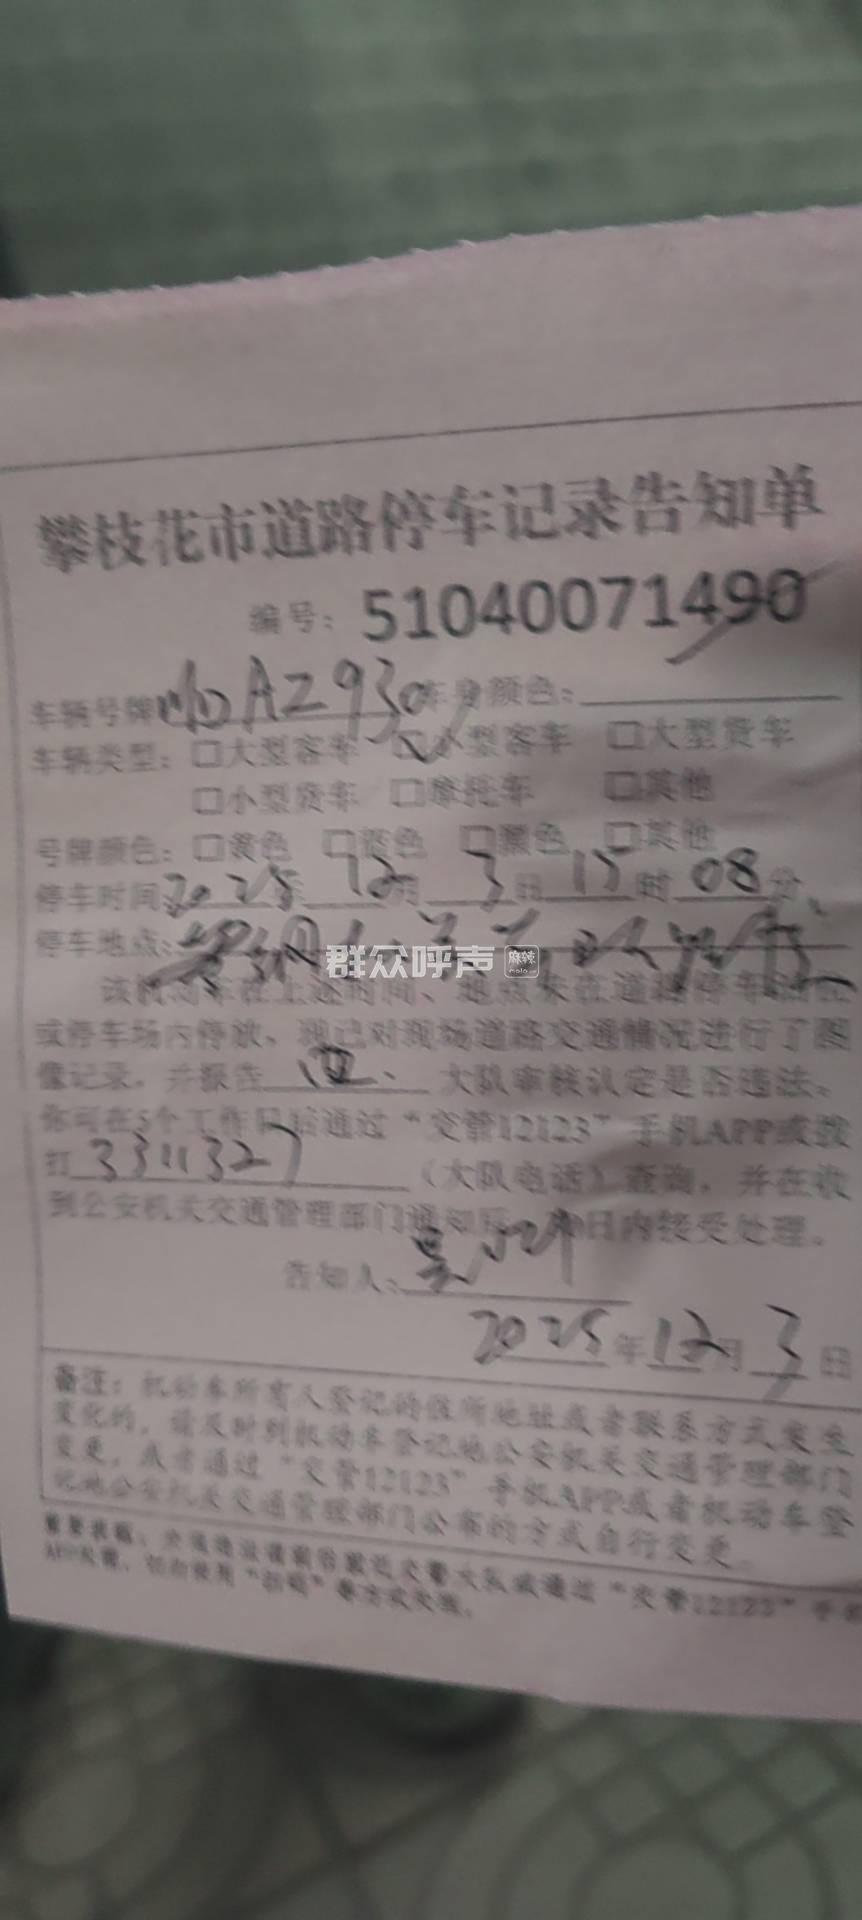 攀枝花市道路停车记录告知单
编号：51040071490
车辆号牌 AZ930 车身颜色：
车辆类型：□大型客车 □小型客车 □大型货车
□小型货车 □摩托车 □其他
号牌颜色：□黄色 □蓝色 □黑色 □其他
停车时间：2025年12月3日15时08分
停车地点：
群众呼声 麻辣
该机动车在上述时间、地点未在道路停车泊位
或停车场内停放，现已对现场道路交通情况进行了图
像记录，并报告 四 大队审核认定是否违法。
你可在5个工作日后通过“交管12123”手机APP或拨
打3311327（大队电话）查询，并在收
到公安机关交通管理部门通知后 日内接受处理。
告知人：吴
2025年12月3日
备注：机动车所有人登记的住所地址或者联系方式发生
变化的，请及时到机动车登记地公安机关交通管理部门
变更，或者通过“交管12123”手机APP或者机动车登
记地公安机关交通管理部门公布的方式自行变更。
“交管12123”手机